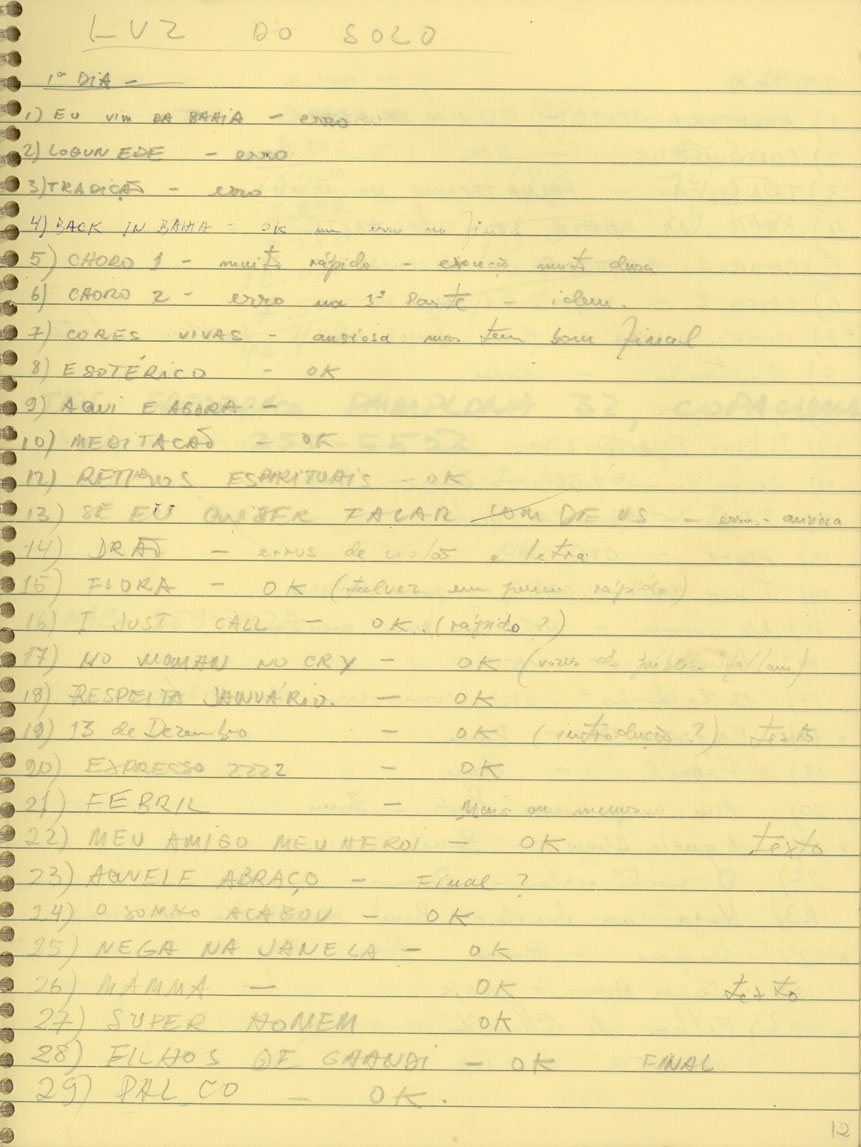 LUZ DO SOLO
1º DIA -
1) EU VIM DA BAHIA - erro
2) LOGUN EDE - erro
3) TRADIÇÃO - erro
4) BACK IN BAHIA - OK um erro no final
5) CHORO 1 - muito rápido - execução muito dura
6) CHORO 2 - erro na parte - idem.
7) CORES VIVAS - ansiosa mas tem bom final
8) ESOTÉRICO - OK
9) AQUI E AGORA -
10) MEDITAÇÃO - OK
12) RETIROS ESPIRITUAIS - OK
13) SE EU QUISER FALAR COM DEUS - erro - ansiosa
14) DRÃO - erros de violão e letra
15) FLORA - OK (talvez um pouco rápido)
16) I JUST CALL - OK. (rápido?)
17) NO WOMAN NO CRY - OK (vozes do público)
18) RESPEITA JANUÁRIO. - OK
19) 13 de Dezembro - OK (introdução?) texto
20) EXPRESSO 2222 - OK
21) FEBRIL - Mais ou menos
22) MEU AMIGO MEU HEROI - OK texto
23) AQUELE ABRAÇO - Final?
24) O SONHO ACABOU - OK
25) NEGA NA JANELA - OK
26) MAMMA - OK texto
27) SUPER HOMEM OK
28) FILHOS DE GHANDI - OK FINAL
29) PALCO - OK.
12